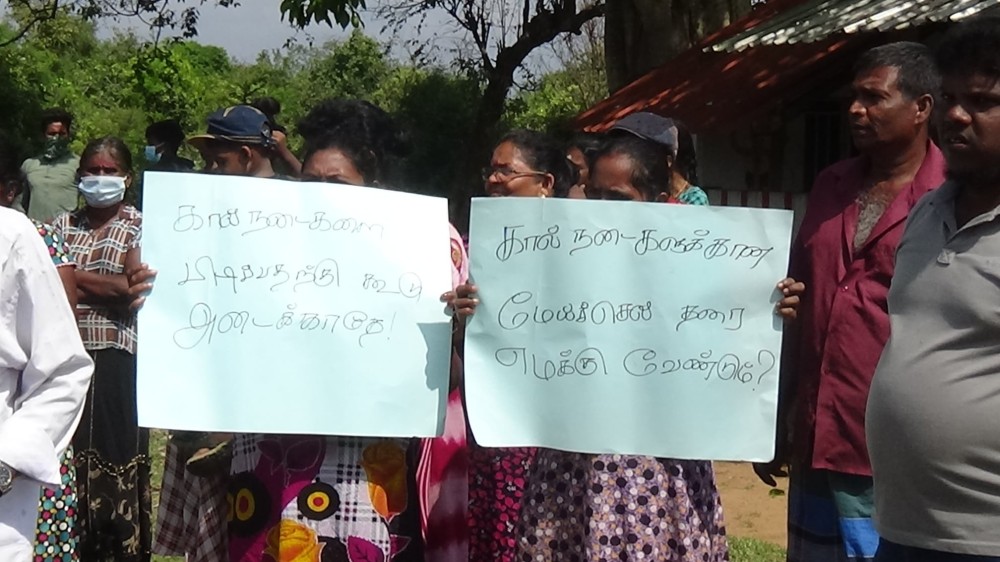 கால் நடைகளை
பிடிப்பதற்கு கூடு
அடைக்காதே!
கால் நடைகளுக்கான
மேய்ச்சல் தரை
எமக்கு வேண்டும்?